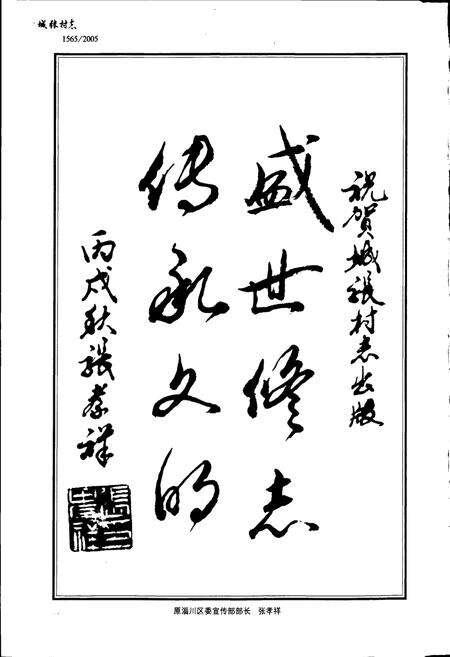 城张村志
1565/2005
祝贺城張村志出版
盛世修志
传承文明
丙戌秋張孝祥
張孝祥
原淄川区委宣传部部长 张孝祥